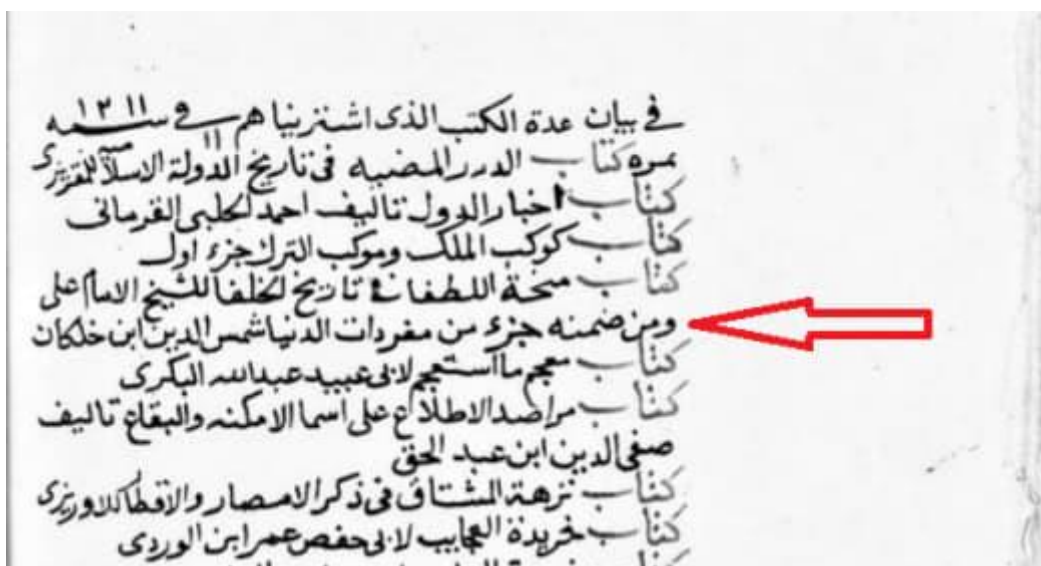 في بيان عدة الكتب الذى اشترينا هم في سنـــه ١٣١١
نمره كتاب الدرر المضيه فى تاريخ الدولة الاسلا للمقريزى
كتاب اخبار الدول تاليف احمد الحلبى القرمانى
كتاب كوكب الملك وموكب الترك جزء اول
كتاب منحة اللطفا في تاريخ الخلفا للشيخ الامام على
ومن ضمنه جزء من مفردات الدنيا شمس الدين ابن خلكان
كتاب معجم ما استعجم لابى عبيد عبدالله البكرى
كتاب مراصد الاطلاع على اسما الامكنه والبقاع تاليف
صفى الدين ابن عبد الحق
كتاب نزهة المشتاق فى ذكر الامصار والاقطا
كتاب خريدة العجايب لابى حفص عمر ابن الوردى